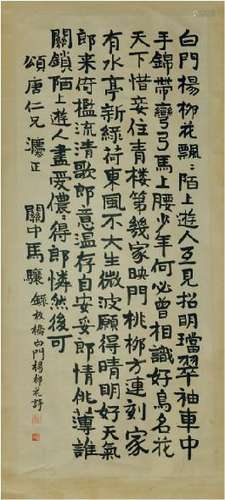 白門楊柳花飄〻陌上遊人互見招明璫翠袖車中
手錦帶彎弓馬上腰少年何必曾相識好鳥名花
天下惜妾住青樓第幾家映門桃柳方連刻家
有水亭新綠荷東風不大生微波願得晴明好天氣
郎來倚檻流清歌郎意溫存自安妥郎情佻薄誰
關鎖陌上遊人盡愛儂〻得郎憐然後可
頌唐仁兄灋正
關中馬驤錄板橋白門楊柳花詩